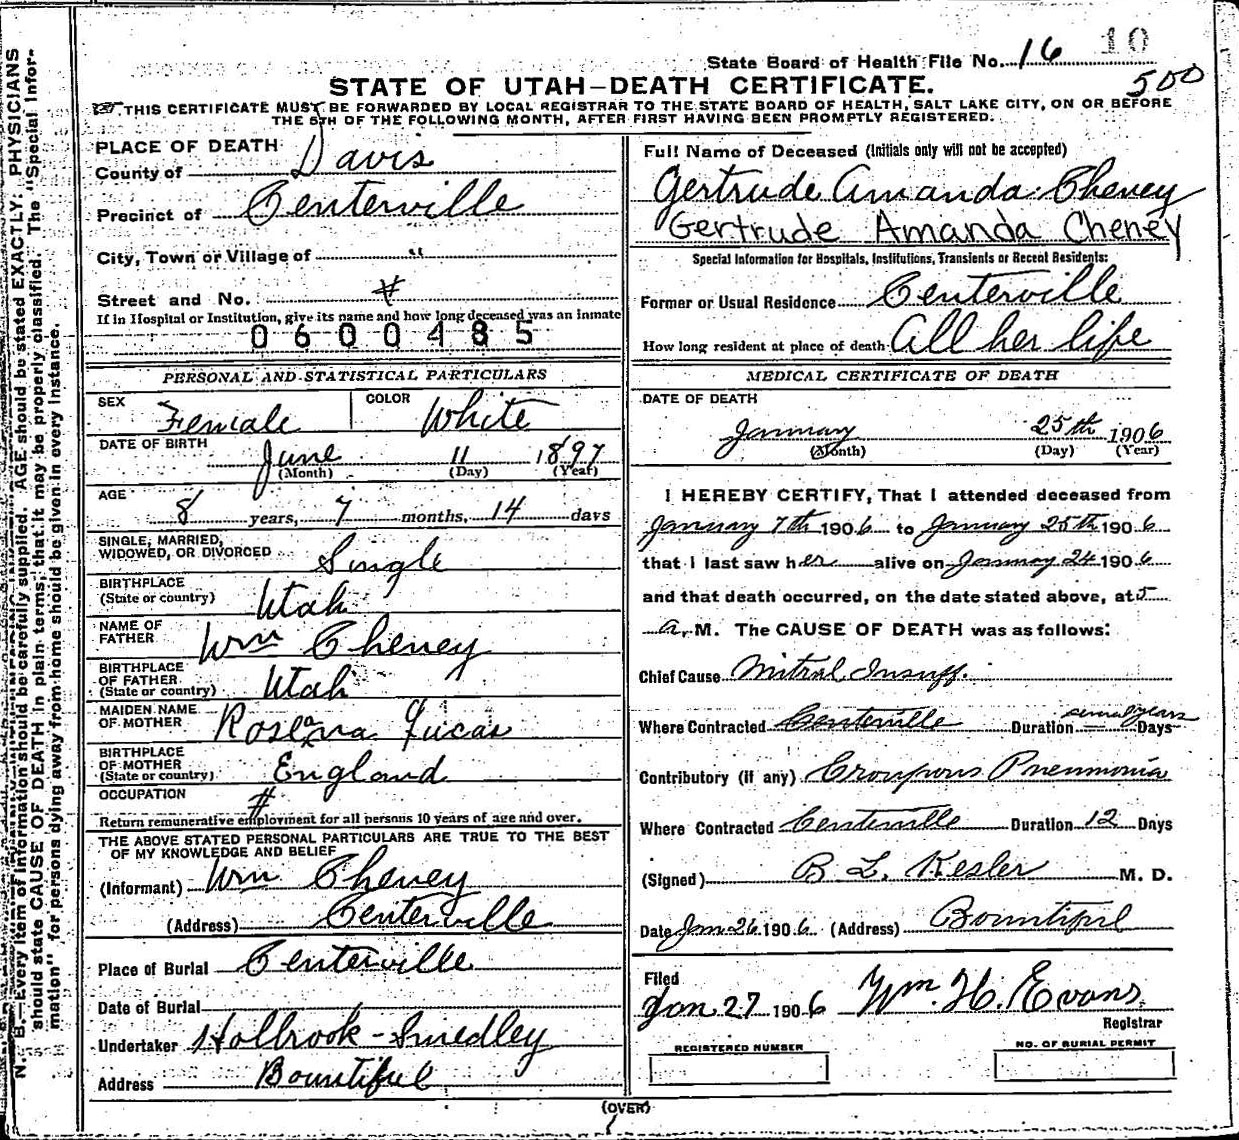 State Board of Health File No. 16 10
500
STATE OF UTAH—DEATH CERTIFICATE.
THIS CERTIFICATE MUST BE FORWARDED BY LOCAL REGISTRAR TO THE STATE BOARD OF HEALTH, SALT LAKE CITY, ON OR BEFORE
THE 5TH OF THE FOLLOWING MONTH, AFTER FIRST HAVING BEEN PROMPTLY REGISTERED.
N. B.—Every item of information should be carefully supplied. AGE should be stated EXACTLY. PHYSICIANS
should state CAUSE OF DEATH in plain terms, that it may be properly classified. The "Special Infor-
mation" for persons dying away from home should be given in every instance.
PLACE OF DEATH
County of Davis
Precinct of Centerville
City, Town or Village of "
Street and No. #
If in Hospital or Institution, give its name and how long deceased was an inmate
0600485
PERSONAL AND STATISTICAL PARTICULARS
SEX Female COLOR White
DATE OF BIRTH
June 11 1897
(Month) (Day) (Year)
AGE
8 years, 7 months, 14 days
SINGLE, MARRIED,
WIDOWED, OR DIVORCED Single
BIRTHPLACE
(State or country) Utah
NAME OF
FATHER Wm Cheney
BIRTHPLACE
OF FATHER
(State or country) Utah
MAIDEN NAME
OF MOTHER Roseanna Lucas
BIRTHPLACE
OF MOTHER
(State or country) England
OCCUPATION #
Return remunerative employment for all persons 10 years of age and over.
THE ABOVE STATED PERSONAL PARTICULARS ARE TRUE TO THE BEST
OF MY KNOWLEDGE AND BELIEF
(Informant) Wm Cheney
(Address) Centerville
Place of Burial Centerville
Date of Burial
Undertaker Holbrook-Smedley
Address Bountiful
Full Name of Deceased (Initials only will not be accepted)
Gertrude Amanda Cheney
Gertrude Amanda Cheney
Special Information for Hospitals, Institutions, Transients or Recent Residents:
Former or Usual Residence Centerville
How long resident at place of death All her life
MEDICAL CERTIFICATE OF DEATH
DATE OF DEATH
January 25th 1906
(Month) (Day) (Year)
I HEREBY CERTIFY, That I attended deceased from
January 7th 1906 to January 25th 1906
that I last saw her alive on January 24 1906
and that death occurred, on the date stated above, at 5
a. M. The CAUSE OF DEATH was as follows:
Chief Cause Mitral Insuff.
Where Contracted Centerville Duration several years Days
Contributory (if any) Croupous Pneumonia
Where Contracted Centerville Duration 12 Days
(Signed) B. L. Kesler M. D.
Date Jan 26 1906 (Address) Bountiful
Filed
Jan 27 1906 Wm. H. Evans
Registrar
REGISTERED NUMBER
NO. OF BURIAL PERMIT
(OVER)